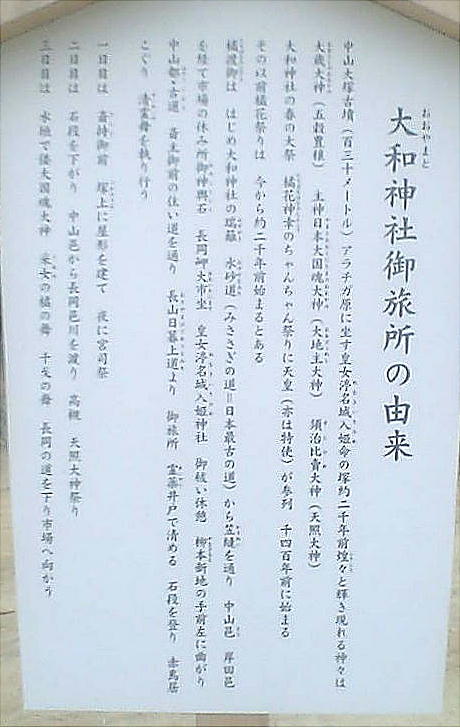 大和神社御旅所の由来
中山大塚古墳（百三十メートル）アラチガ原に坐す皇女渟名城入姫命の塚約二千年前煌々と輝き現れる神々は
大歳大神（五穀豊穣）　主神日本大国魂大神（大地主大神）　須治比賣大神（天照大神）
大和神社の春の大祭　橘花神幸のちゃんちゃん祭りに天皇（亦は特使）が参列　千四百年前に始まる
その以前橘花祭りは　今から約二千年前始まるとある
橘渡御は　はじめ大和神社の瑞籬　水砂道（みささぎの道＝日本最古の道）から笠縫を通り　中山邑　岸田邑
を経て市場の休み所御神輿石　長岡岬大市坐　皇女渟名城入姫神社　御祓い休憩　柳本新地の手前左に曲がり
中山都・古道　斎主御前の住い道を通り　長山日暮上道より　御旅所　霊薬井戸で清める　石段を登り　赤鳥居
こぐり　清霊舞を執り行う
一日目は　斎持御前　塚上に屋形を建て　夜に宮司祭
二日目は　石段を下がり　中山邑から長岡邑川を渡り　高槻　天照大神祭り
三日目は　水垣で倭大国魂大神　采女の橘の舞　千戈の舞　長岡の道を下り市場へ向かう